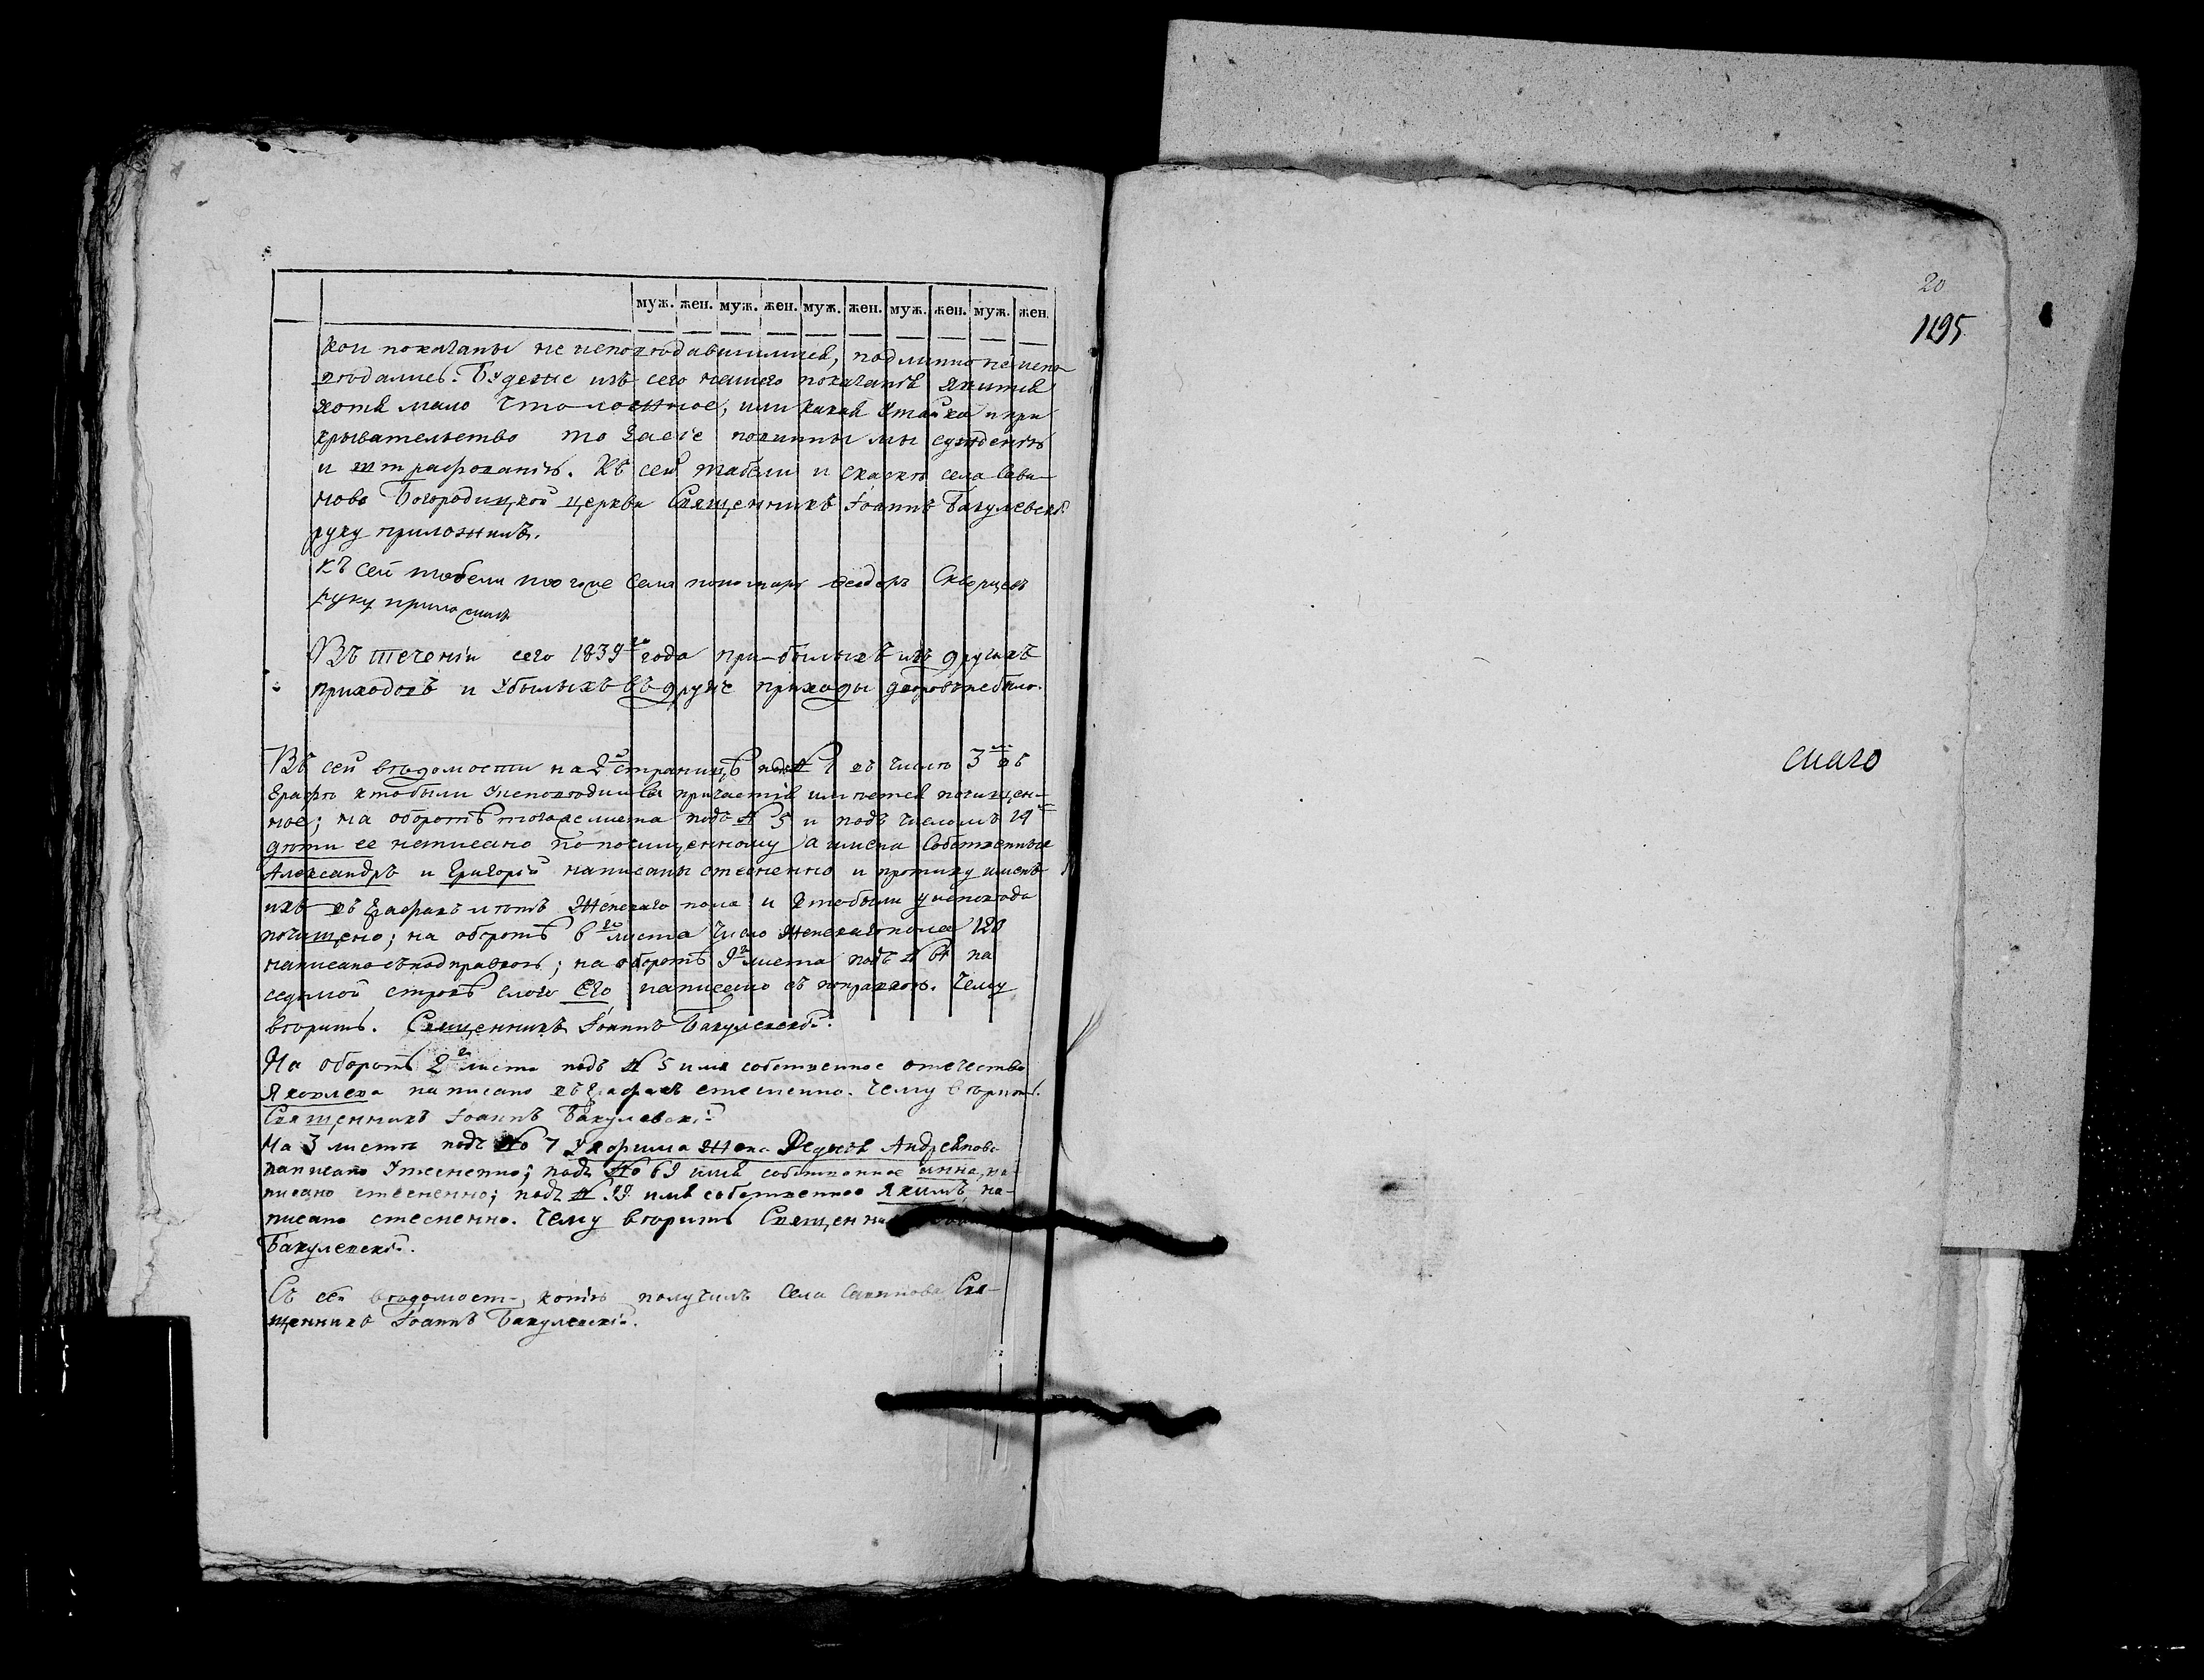 муж. жен. муж. жен. муж. жен. муж. жен. муж. жен.
кои показаны не исповѣдавшимися, подлинно не испо-
вѣдались. Будеже изъ сего нашего показанія явится
хотя мало что ложное, или какая утайка и при
крывательство то за сіе повинны мы сужденію
и штрафованію. Къ сей табели и сказкѣ села Сави-
нова Богородицкой церкви Священникъ Іоаннъ Бакулевскій
руку приложилъ.
Къ сей табели того же села пономарь Ѳеодоръ Скворцевъ
руку приложилъ
Въ теченіи сего 1839го года прибылыхъ изъ другихъ
приходовъ и убылыхъ въ другіе приходы дворовъ не было.
Въ сей вѣдомости на 2й страницѣ подъ № въ числѣ 3 въ
графѣ кто были у исповѣди и Св причастія имѣется почищен-
ное; на оборотѣ того же листа подъ № 5 и подъ числомъ 14
дѣти ее написано по почищенному а имена собственные
Александръ и Григорій написаны стесненно и противу именъ
ихъ въ графахъ лѣтъ женскаго пола и кто были у исповѣди
почищено; на оборотѣ 6го листа число женскаго пола 120
написано съ подправкою; на оборотѣ 9го листа подъ № 64 на
седьмой строкѣ слово Его написано съ поправкою. Чему
вѣрить. Священникъ Іоаннъ Бакулевскій.
На оборотѣ 2го листа подъ № 5 имя собственное отечества
Яковлева написано въ графахъ стесненно. Чему вѣрить.
Священникъ Іоаннъ Бакулевскій
На 3 листѣ подъ № 7 Ефрима жена Ѳедосья Андреянова
написано стесненно; подъ № 69 имя собственное Анна на-
писано стесненно; подъ № 29 имя собственное Якимъ на-
писано стесненно. Чему вѣрить Священникъ
Бакулевскій.
Съ сей вѣдомости копію получилъ села Савинова Свя-
щенникъ Іоаннъ Бакулевскій.
20
1195
скаго